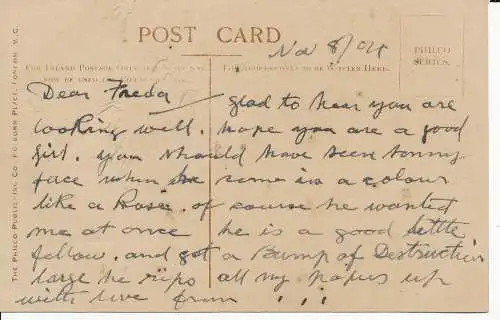 POST CARD
Nov 8/04
FOR INLAND POSTAGE ONLY THIS
FOR ADDRESS ONLY TO BE WRITTEN HERE.
PHILCO
SERIES.
THE PHILCO PUBLISHING CO. HOLBORN PLACE, LONDON. W.C.
Dear Freda glad to hear you are
looking well. hope you are a good
girl. you should have seen
face when he come in a colour
like a Rose. of course he wanted
me at once he is a good little
fellow. and got a Bump of Destruction
large he rips all my papers up
with love from . . .